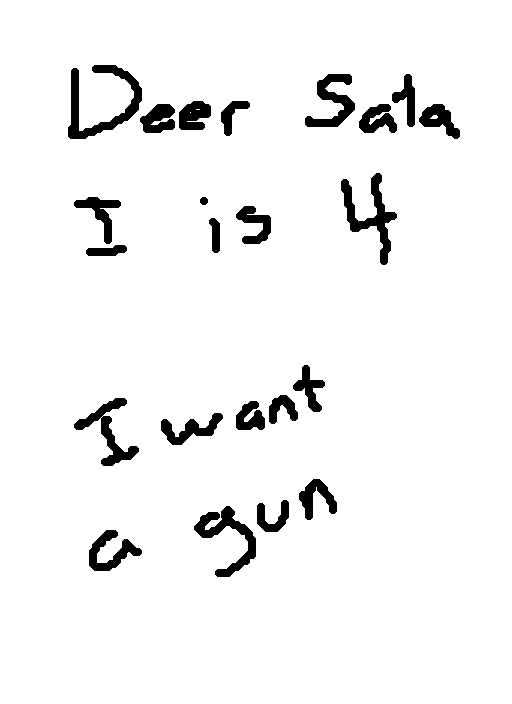 Deer Sata
I is 4
I want
a gun